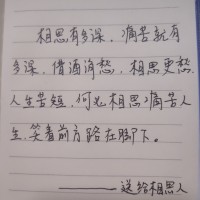 相思有多深,痛苦就有
多深,借酒消愁,相思更愁.
人生苦短,何必相思痛苦人
生,笑看前方路在脚下.
——送给相思人